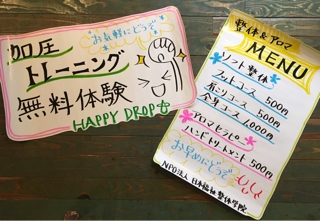 お気軽にどうぞ
加圧
トレーニング
無料体験
HAPPY DROP
整体&アロマ
MENU
ソフト整体
フットコース 500円
ボディコース 500円
全身コース 1000円
アロマセラピー
ハンドトリートメント 500円
お早めにどうぞ
NPO法人 日本福祉整体学院